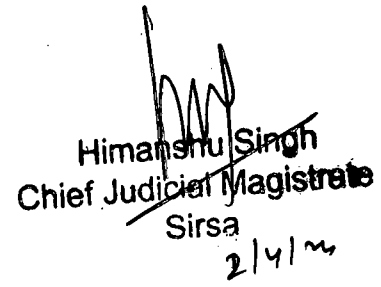 Himanshu Singh
Chief Judicial Magistrate
Sirsa
2/4/